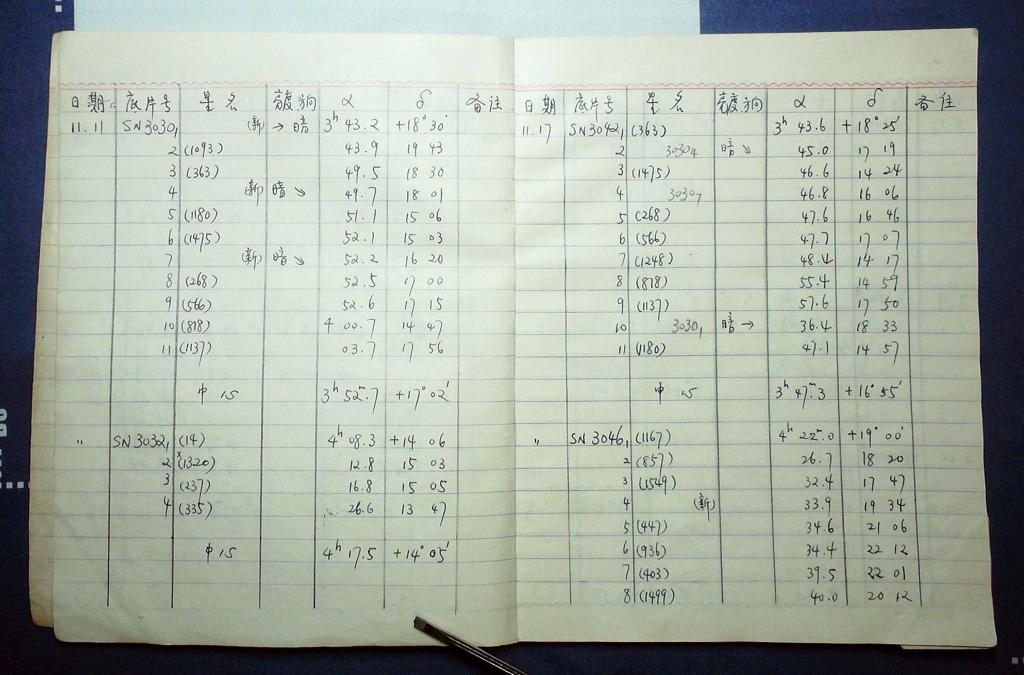 日期 底片号 星名 α δ 备注
11.11 SN3030₁ (新) → 暗 3ʰ 43.2 +18° 30'
2 (1093) 43.9 19 43
3 (363) 49.5 18 30
4 (新) 暗 ↘ 49.7 18 01
5 (1180) 51.1 15 06
6 (1475) 52.1 15 03
7 (新) 暗 ↘ 52.2 16 20
8 (268) 52.5 17 00
9 (566) 52.6 17 15
10 (818) 4 00.7 14 47
11 (1137) 03.7 17 56
中心 3ʰ 52ᵐ.7 +17° 02'
" SN3032₁ (14) 4ʰ 08.3 +14 06
2 ˣ(1320) 12.8 15 03
3 (237) 16.8 15 05
4 (335) 26.6 13 47
中心 4ʰ 17.5 +14° 05'
日期 底片号 星名 α δ 备注
11.17 SN3042₁ (363) 3ʰ 43.6 +18° 25'
2 3030₄ 暗 ↘ 45.0 17 19
3 (1475) 46.6 14 24
4 3030₇ 46.8 16 06
5 (268) 47.6 16 46
6 (566) 47.7 17 07
7 (1248) 48.4 14 17
8 (818) 55.4 14 59
9 (1137) 57.6 17 50
10 3030₁ 暗 → 36.4 18 33
11 (1180) 47.1 14 57
中心 3ʰ 47ᵐ.3 +16° 55'
" SN3046₁ (1167) 4ʰ 22ᵐ.0 +19° 00'
2 (857) 26.7 18 20
3 (1549) 32.4 17 47
4 (新) 33.9 19 34
5 (447) 34.6 21 06
6 (936) 34.4 22 12
7 (403) 39.5 22 01
8 (1499) 40.0 20 12